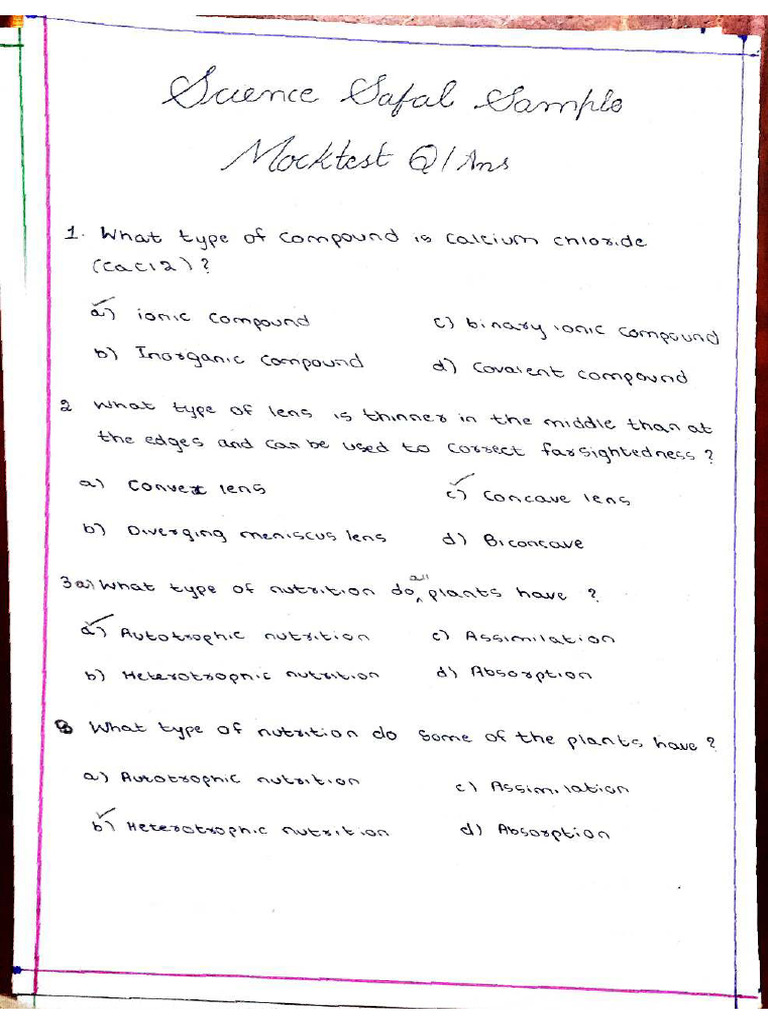 Science Safal Sample
Mocktest Q/Ans
1. What type of compound is calcium chloride
(CaCl2)?
a) ionic compound
c) binary ionic compound
b) Inorganic compound
d) Covalent compound
2 What type of lens is thinner in the middle than at
the edges and can be used to correct farsightedness?
a) Convex lens
c) Concave lens
b) Diverging meniscus lens
d) Biconcave
3 a) What type of nutrition do all plants have ?
a) Autotrophic nutrition
c) Assimilation
b) Heterotrophic nutrition
d) Absorption
B What type of nutrition do some of the plants have ?
a) Autotrophic nutrition
c) Assimilation
b) Heterotrophic nutrition
d) Absorption